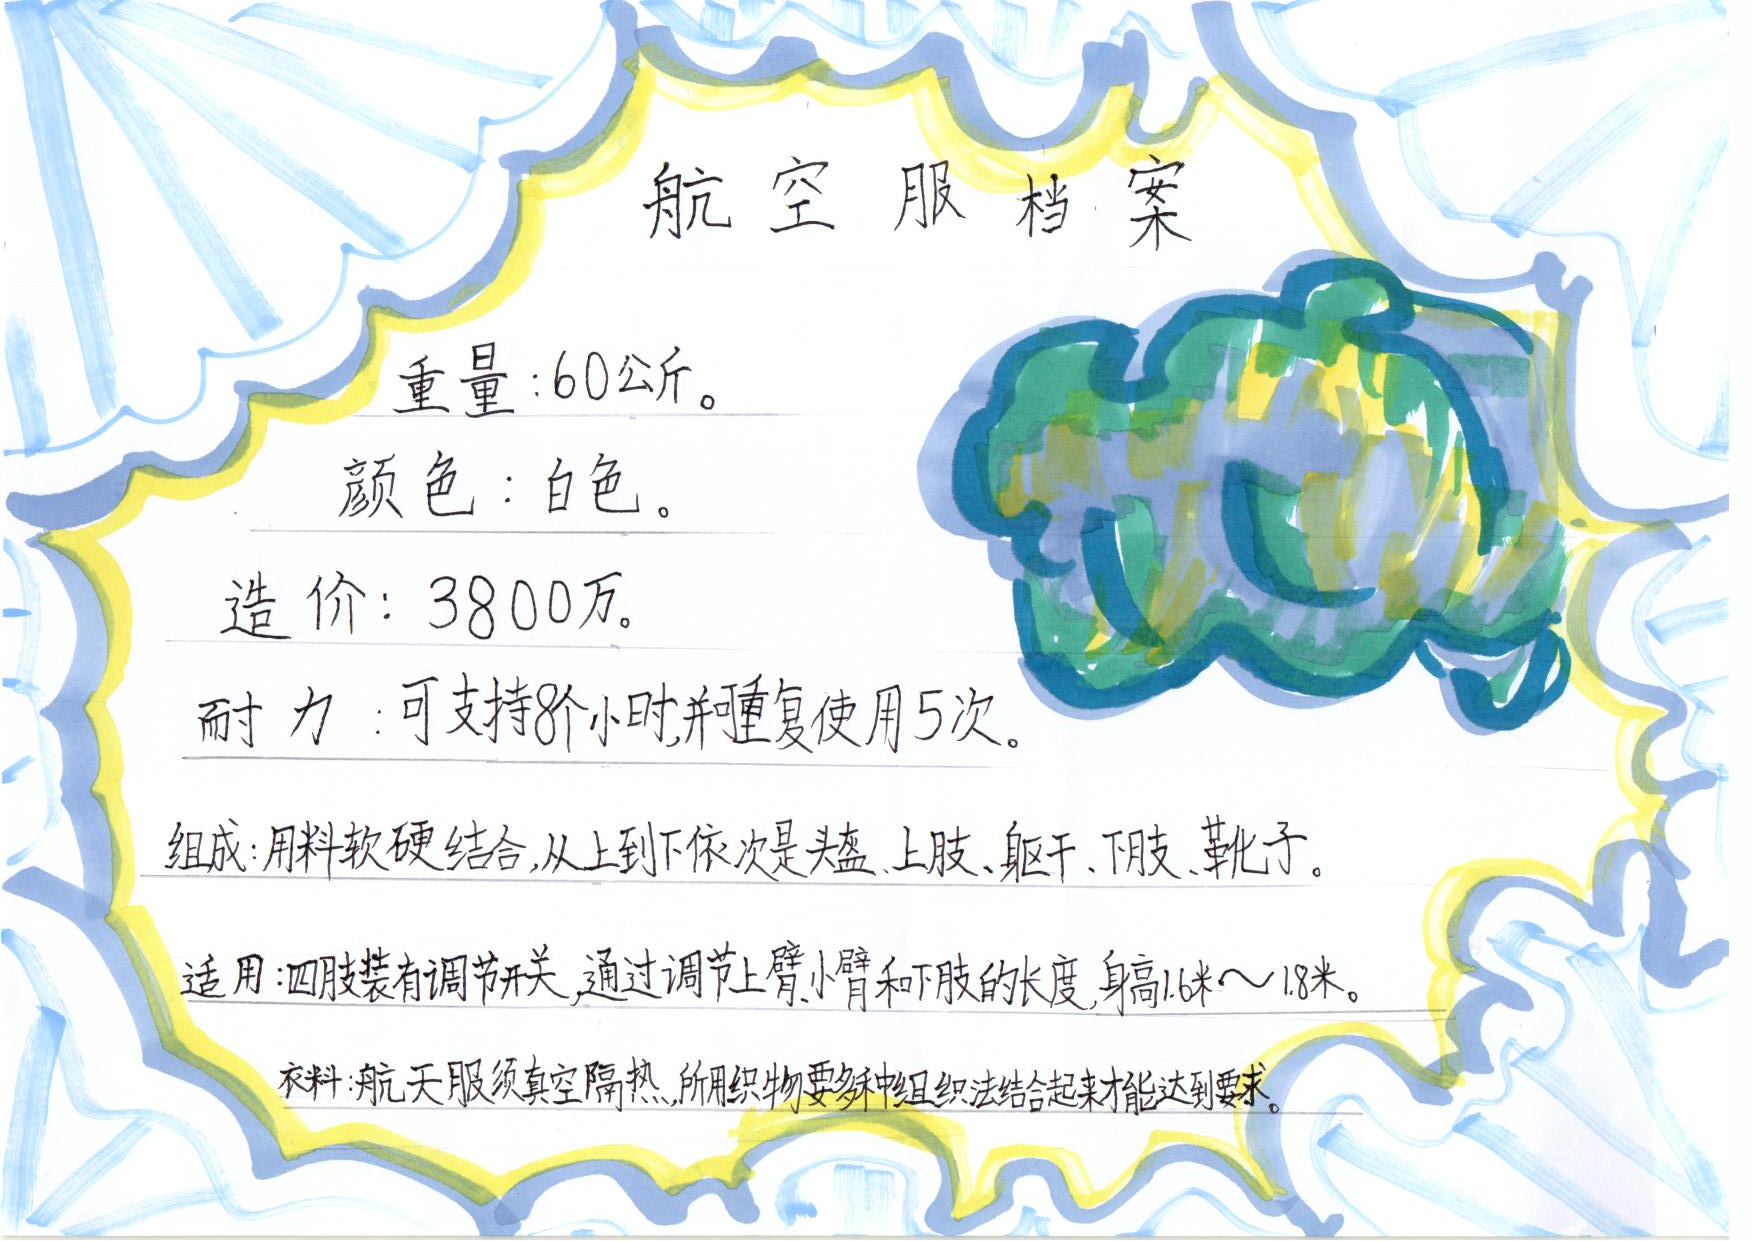 航空服档案
重量:60公斤。
颜色:白色。
造价:3800万。
耐力:可支持8个小时,并可重复使用5次。
组成:用料软硬结合,从上到下依次是头盔、上肢、躯干、下肢、靴子。
适用:四肢装有调节开关,通过调节上臂、小臂和下肢的长度,身高1.6米～1.8米。
衣料:航天服须真空隔热,所用织物要多种组织法结合起来才能达到要求。